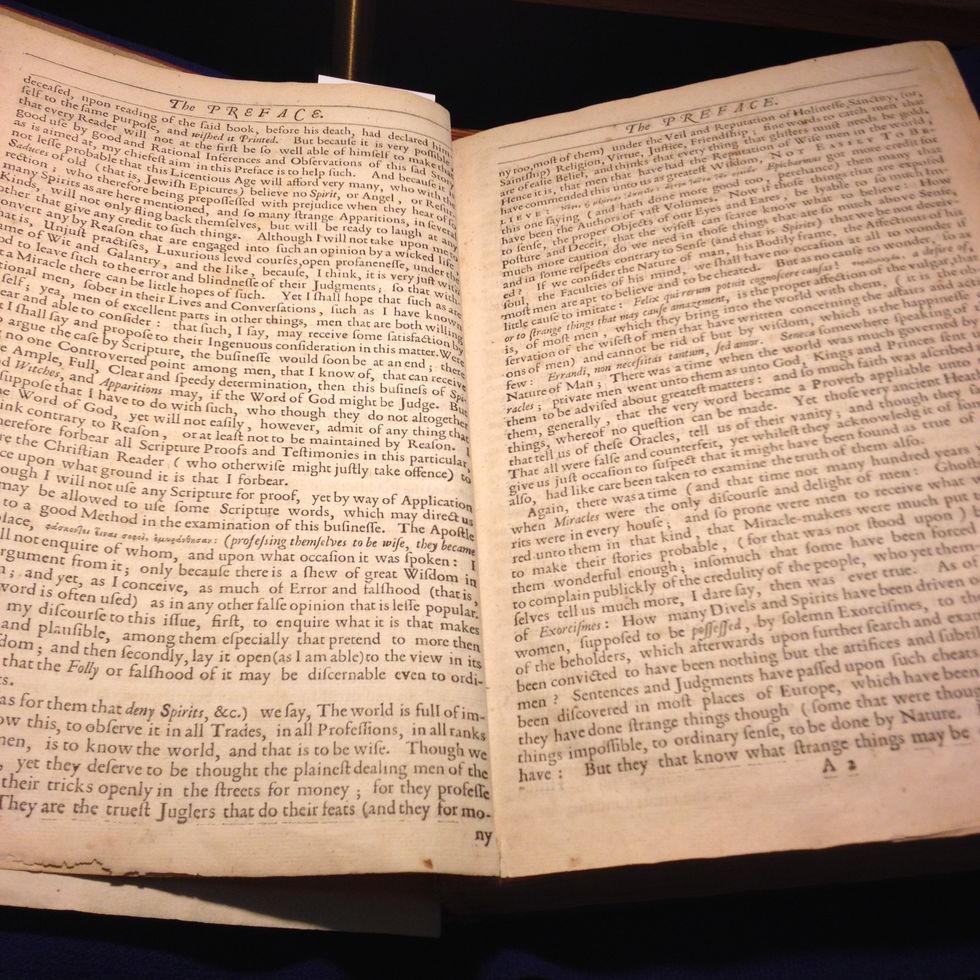 The PREFACE.
deceased, upon reading of the said book, before his death, had declared him-
self to the same purpose, and wiſhed it Printed. But because it is very poſſible
that every Reader will not at the firſt be ſo well able of himſelf to make that
good uſe by good and Rational Inferences and Obſervations of this ſad Story
as is aimed at, my chiefeſt aim in this Preface is to help ſuch. And becauſe it is
no leſſe probable that this Licentious Age will afford very many, who with the
Saduces of old (that is, Jewiſh Epicures) believe no Spirit, or Angel, or Reſur-
rection; who therefore being prepoſſeſſed with prejudice when they hear of ſo
many Spirits as are here mentioned, and ſo many ſtrange Apparitions, in ſeveral
Kinds, will not only fling back themſelves, but will be ready to laugh at any
other that give any credit to ſuch things. Although I will not take upon me to
convert any by Reaſon that are engaged into ſuch an opinion by a wicked life,
that is, Unjuſt practiſes, Luxurious lewd courſes, open profaneneſſe, under the
name of Wit and Galantry; and the like, becauſe, I think, it is very juſt with
to leave ſuch to the error and blindneſſe of their Judgments; ſo that with-
a Miracle there can be little hopes of ſuch. Yet I ſhall hope that ſuch as are
tional men, ſober in their Lives and Converſations, ſuch as I have known
ſelf; yea, men of excellent parts in other things, men that are both willing
ear and able to conſider: that ſuch, I ſay, may receive ſome ſatisfaction by
t I ſhall ſay and propoſe to their Ingenuous conſideration in this matter. Were
o argue the caſe by Scripture, the buſineſſe would ſoon be at an end; there
no one Controverted point among men, that I know of, that can receive
e Ample, Full, Clear and ſpeedy determination, then this buſineſs of Spi-
d Witches, and Apparitions may, if the Word of God might be Judge. But
ſuppoſe that I have to do with ſuch, who though they do not altogether
e Word of God, yet will not eaſily, however, admit of any thing that
ink contrary to Reaſon, or at leaſt not to be maintained by Reaſon. I
herefore forbear all Scripture Proofs and Teſtimonies in this particular,
re the Chriſtian Reader (who otherwiſe might juſtly take offence) to
ce upon what ground it is that I forbear.
ough I will not uſe any Scripture for proof, yet by way of Application
may be allowed to uſe ſome Scripture words, which may direct us
to a good Method in the examination of this buſineſſe. The Apoſtle
place, (profeſſing themſelves to be wiſe, they became
ll not enquire of whom, and upon what occaſion it was ſpoken: I
rgument from it; only becauſe there is a ſhew of great Wiſdom in
n; and yet, as I conceive, as much of Error and falſhood (that is,
word is often uſed) as in any other falſe opinion that is leſſe popular.
my diſcourſe to this iſſue, firſt, to enquire what it is that makes
and plauſible, among them eſpecially that pretend to more then
dom; and then ſecondly, lay it open (as I am able) to the view in its
that the Folly or falſhood of it may be diſcernable even to ordi-
s.
as for them that deny Spirits, &c.) we ſay, The world is full of im-
ow this, to obſerve it in all Trades, in all Profeſſions, in all ranks
nen, is to know the world, and that is to be wiſe. Though we
, yet they deſerve to be thought the plaineſt dealing men of the
their tricks openly in the ſtreets for money; for they profeſſe
They are the trueſt Juglers that do their feats (and they for mo-
ny
The PREFACE.
ny too, moſt of them) under the Veil and Reputation of Holineſſe, Sanctity, (or,
Saintſhip) Religion, Virtue, Juſtice, Friendſhip; fine words to catch men that
are of eaſie Belief, and thinks that every thing that gliſters muſt needs be gold.
Hence it is, that men that have had the Reputation of Wiſe men in the world,
have commended this unto us as greateſt Wiſdom, NOT EASILY TO BE-
LIEVE: Epicharmus got more credit for
this one ſaying (and hath done more good too, perchance) then many that
have been the Authors of vaſt Volumes. Now if thoſe things that are expoſed
to ſenſe, the proper Objects of our Eyes and Eares, be lyable to ſo much Im-
poſture and Deceit, that the wiſeſt can ſcarce know what to believe: How
much more caution do we need in thoſe things that are ſo much above ſenſe,
and in ſome reſpects contrary to Senſe (and that is Spirits) that we be not deceiv-
ed? If we conſider the Nature of man, his Bodily frame, the Affections of his
ſoul, the Faculties of his mind, we ſhall have no occaſion at all to wonder if
moſt men are apt to believe and to be cheated. But as no cauſe to wonder, ſo as
little cauſe to imitate: Felix qui rerum potuit cognoſcere cauſas!
or to ſtrange things that may cauſe amazement, is the proper affection of the vulgar, that
is, of moſt men, which they bring into the world with them, (it is the ob-
ſervation of the wiſeſt of men that have written concerning the affairs and acti-
ons of men) and cannot be rid of but by wiſdom, which is the happineſs of
few: Errandi, non neceſſitas tantum, ſed amor. Seneca ſomewhere ſpeaking of the
Nature of Man; There was a time when the world was much governed by O-
racles; private men went unto them as unto God, Kings and Princes ſent unto
them to be adviſed about greateſt matters: and ſo much faith was aſcribed unto
them, generally, that the very word became a Proverb appliable unto thoſe
things, whereof no queſtion can be made. Yet thoſe very ancient Heathens
that tell us of theſe Oracles, tell us of their vanity; and though they do not ſay
That all were falſe and counterfeit, yet whileſt they acknowledg it of ſome, they
give us juſt occaſion to ſuſpect that it might have been found as true of the reſt
alſo, had like care been taken to examine the truth of them alſo.
Again, there was a time (and that time not many hundred years
when Miracles were the only diſcourſe and delight of men: Ghoſts
rits were in every houſe; and ſo prone were men to receive what
red unto them in that kind, that Miracle-makers were much put
to make their ſtories probable, (for that was not ſtood upon) but
them wonderful enough; inſomuch that ſome have been forced
to complain publickly of the credulity of the people, who yet them-
ſelves tell us much more, I dare ſay, then was ever true. As of
of Exorciſmes: How many Divels and Spirits have been driven out
women, ſuppoſed to be poſſeſſed, by ſolemn Exorciſmes, to the
of the beholders, which afterwards upon further ſearch and exam
been convicted to have been nothing but the artifices and ſubtil
men? Sentences and Judgments have paſſed upon ſuch cheats
been diſcovered in moſt places of Europe, which have been
they have done ſtrange things though (ſome that were thou
things impoſſible, to ordinary ſenſe, to be done by Nature.
have: But they that know what ſtrange things may be
A 2